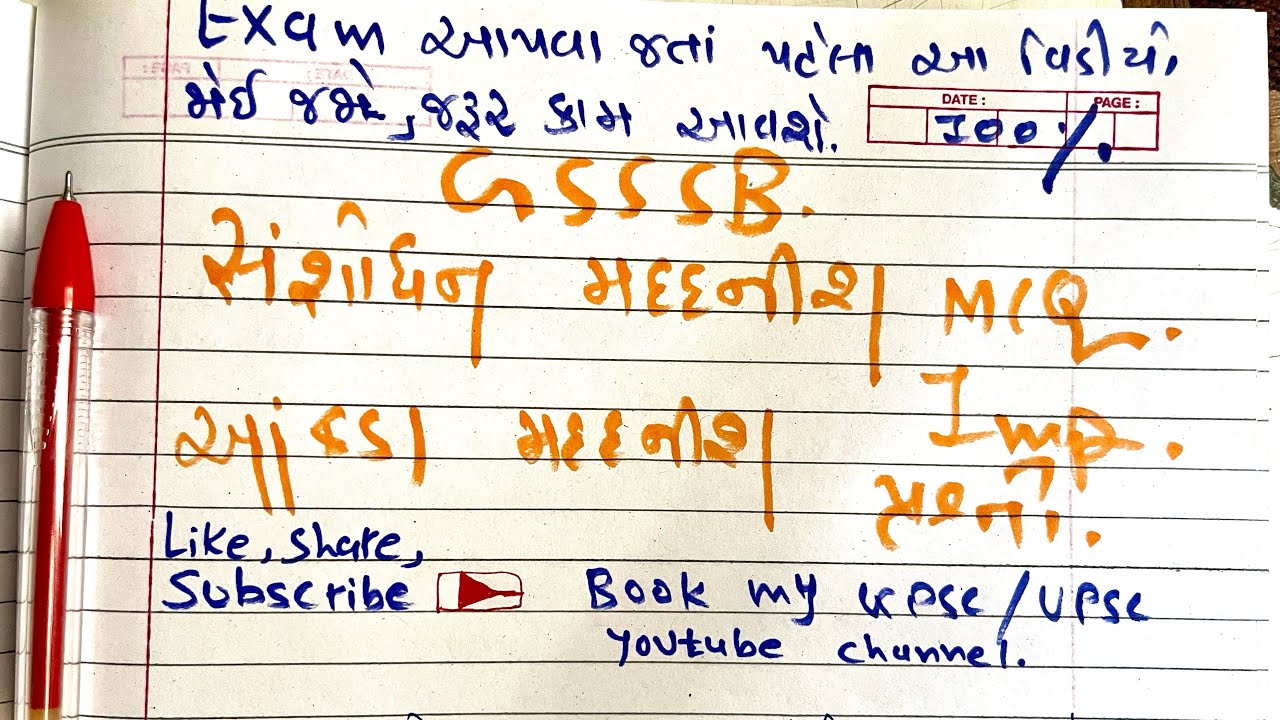 Exam આપવા જતાં પહેલા આ વિડીયો
જોઈ જજો, જરૂર કામ આવશે.
DATE: PAGE:
100%.
GSSSB.
સંશોધન મદદનીશ MCQ.
આંકડા મદદનીશ Imp.
પ્રશ્નો.
Like, share,
Subscribe Book my GPSC/UPSC
Youtube channel.